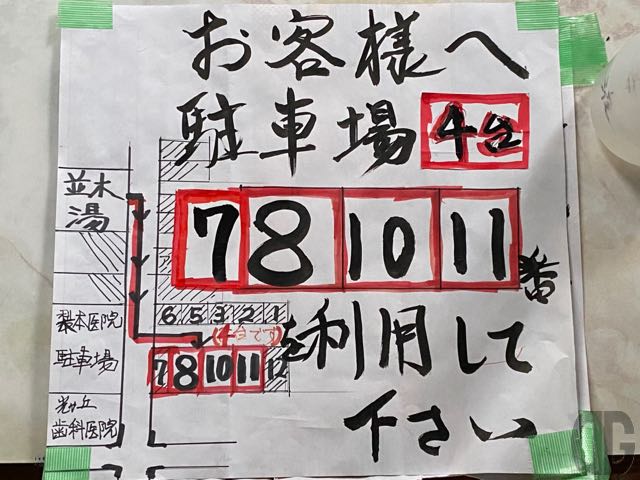 お客様へ
駐車場 4台
7 8 10 11番
を利用して
下さい
並木
湯
6 5 3 2 1
(4台です)
7 8 10 11 12
医院
駐車場
光が丘
歯科医院